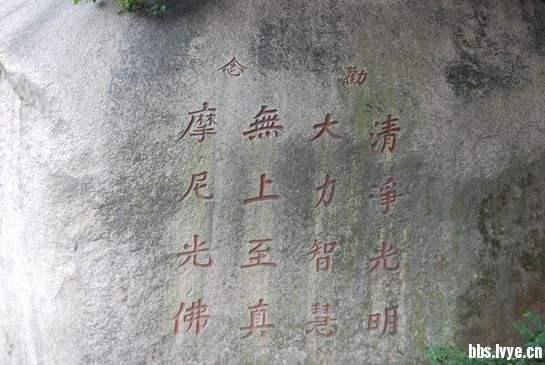 勸念
清淨光明
大力智慧
無上至真
摩尼光佛
bbs.lvye.cn